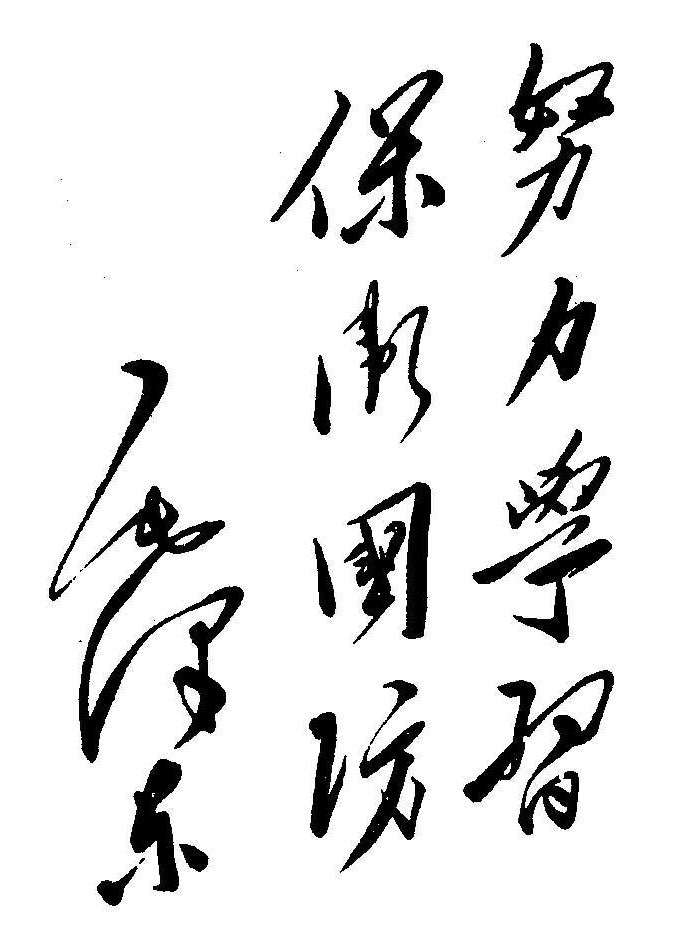 努力學習
保衛國防
毛泽东